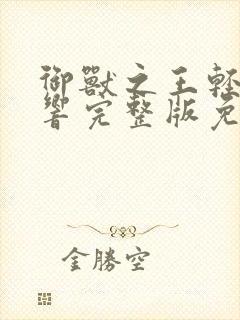 御獸之王輕
響完整版免
金勝空